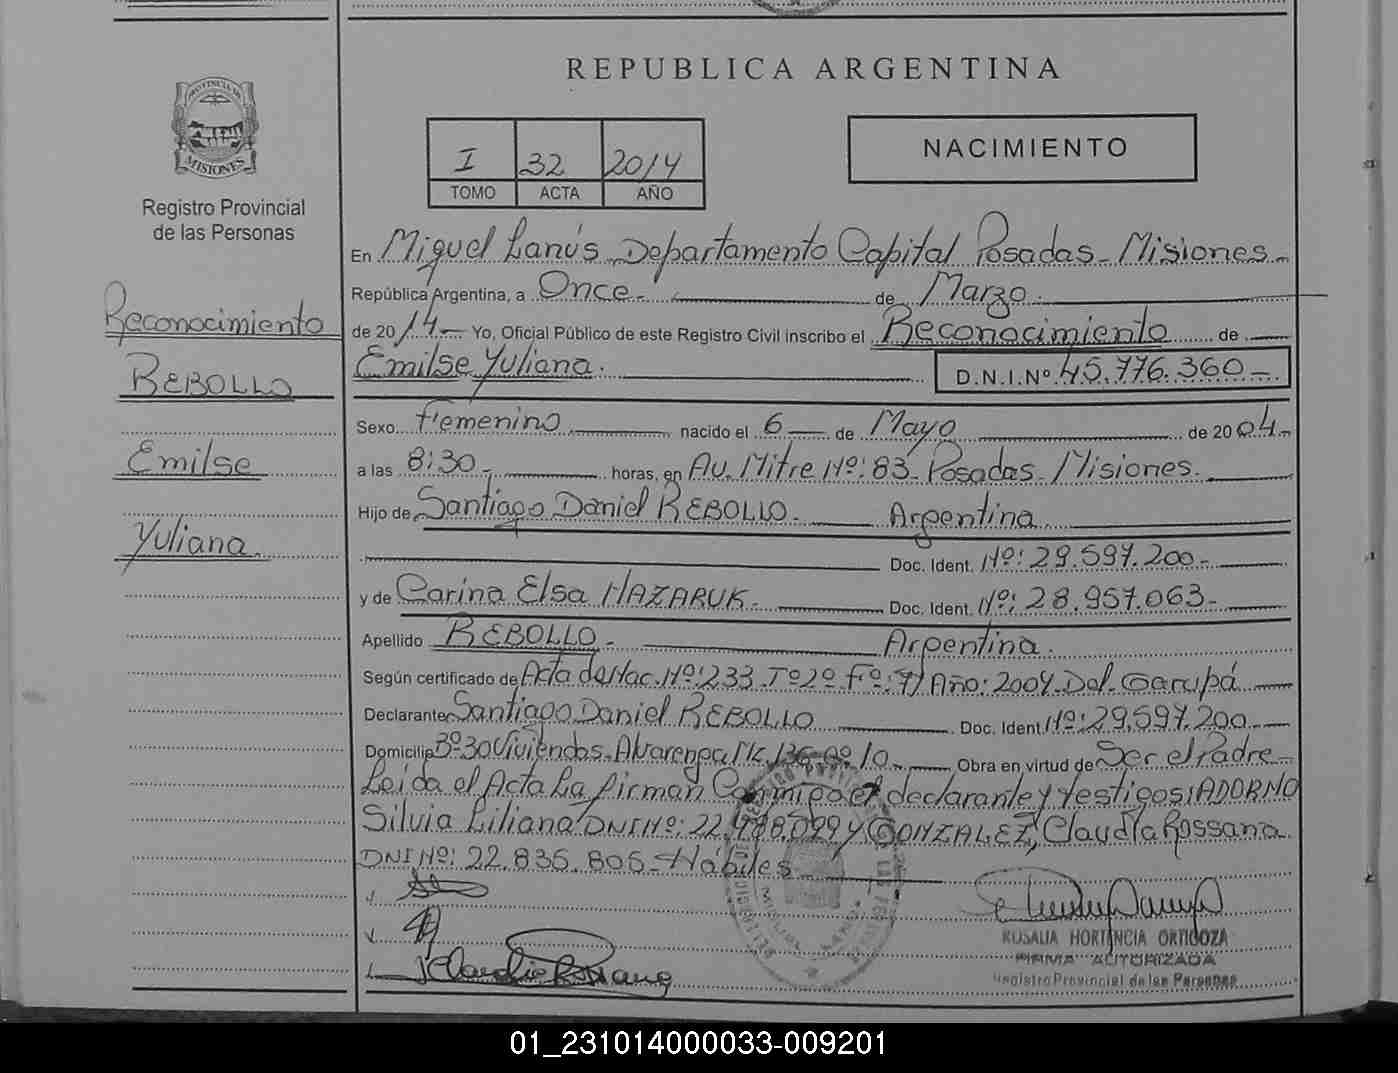 REPUBLICA ARGENTINA
PROVINCIA DE
MISIONES
Registro Provincial
de las Personas
I 32 2014
TOMO ACTA AÑO
NACIMIENTO
Reconocimiento
REBOLLO
Emilse
Yuliana.
En Miguel Lanús Departamento Capital Posadas - Misiones -
República Argentina, a Once - de Marzo.
de 2014 - Yo, Oficial Público de este Registro Civil inscribo el Reconocimiento de
Emilse Yuliana. D.N.I.Nº 45.776.360 -
Sexo Femenino nacido el 6 - de Mayo de 2004 -
a las 8:30 - horas, en Av. Mitre Nº: 83 - Posadas - Misiones.
Hijo de Santiago Daniel REBOLLO - Argentina
Doc. Ident. Nº: 29.597.200 -
y de Carina Elsa NAZARUK - Doc. Ident. Nº: 28.957.063 -
Apellido REBOLLO - Argentina.
Según certificado de Acta de Nac. Nº: 233 - Tº 2º Fº: Año: 2004 - Del. Garupá
Declarante Santiago Daniel REBOLLO Doc. Ident. Nº: 29.597.200 -
Domicilio Bº 30 Viviendas - Alvarenga Mz. 136 10 - Obra en virtud de Ser el Padre -
Leida el Acta La firman Conmigo el declarante y testigos: ADORNO
Silvia Liliana DNI Nº: 22. y GONZALEZ, Claudia Rossana
DNI Nº: 22.835.805 - Hábiles
Claudia Rossana
ROSALIA HORTENCIA ORTIGOZA
FIRMA AUTORIZADA
Registro Provincial de las Personas
01_231014000033-009201